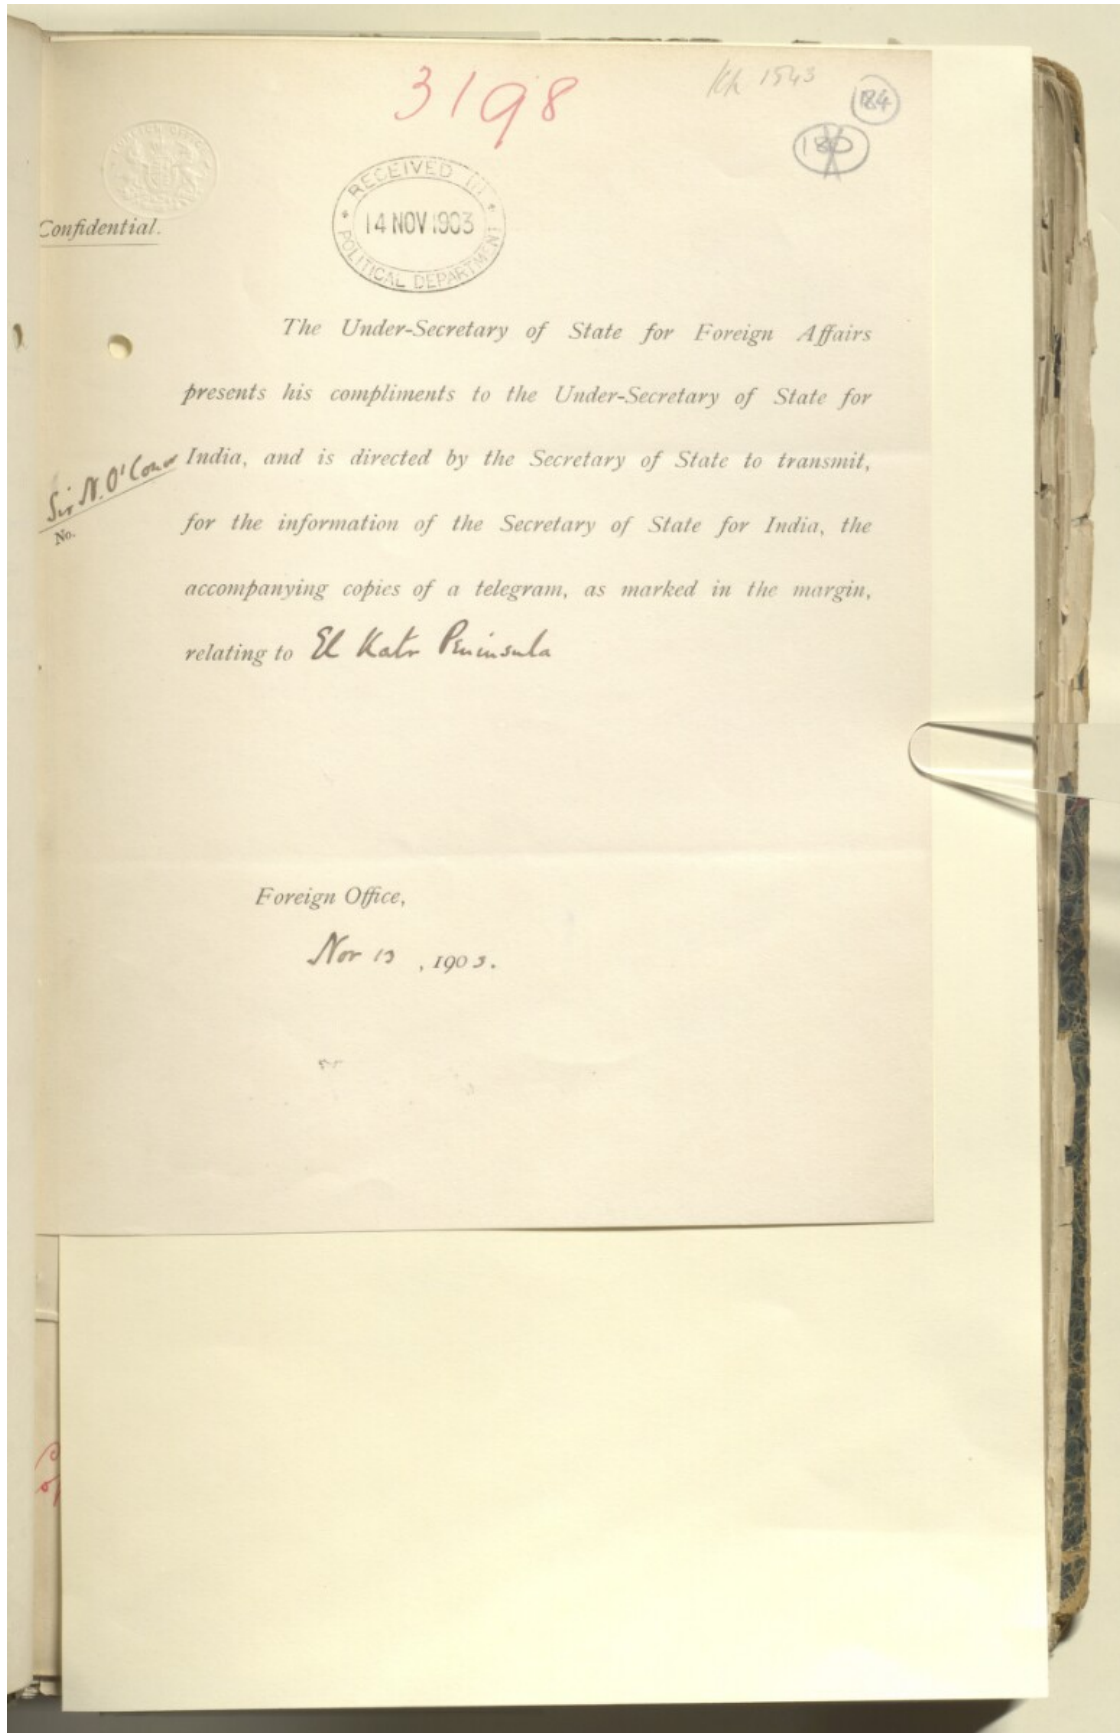 3198
184
Confidential.
RECEIVED IN
14 NOV 1903
POLITICAL DEPARTMENT
The Under-Secretary of State for Foreign Affairs
presents his compliments to the Under-Secretary of State for
Sir N. O'Conor
India, and is directed by the Secretary of State to transmit,
No.
for the information of the Secretary of State for India, the
accompanying copies of a telegram, as marked in the margin,
relating to El Katr Peninsula
Foreign Office,
Nov 13, 1903.